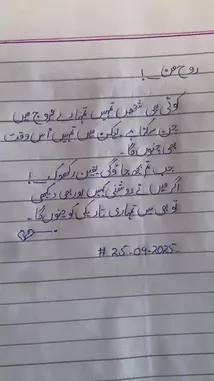 روحِ من __!
کوئی بھی شخص تمہیں تمہارے عروج میں
چن سکتا ہے، لیکن میں تمہیں اُس وقت
بھی چنوں گا۔
جب تم بجھ جاؤ گی یقین رکھو کہ __!
اگر میں نے روشنی کہیں اور بھی دیکھی
تو بھی میں تمہاری تاریکی کو چنوں گا۔
# 25-09-2025